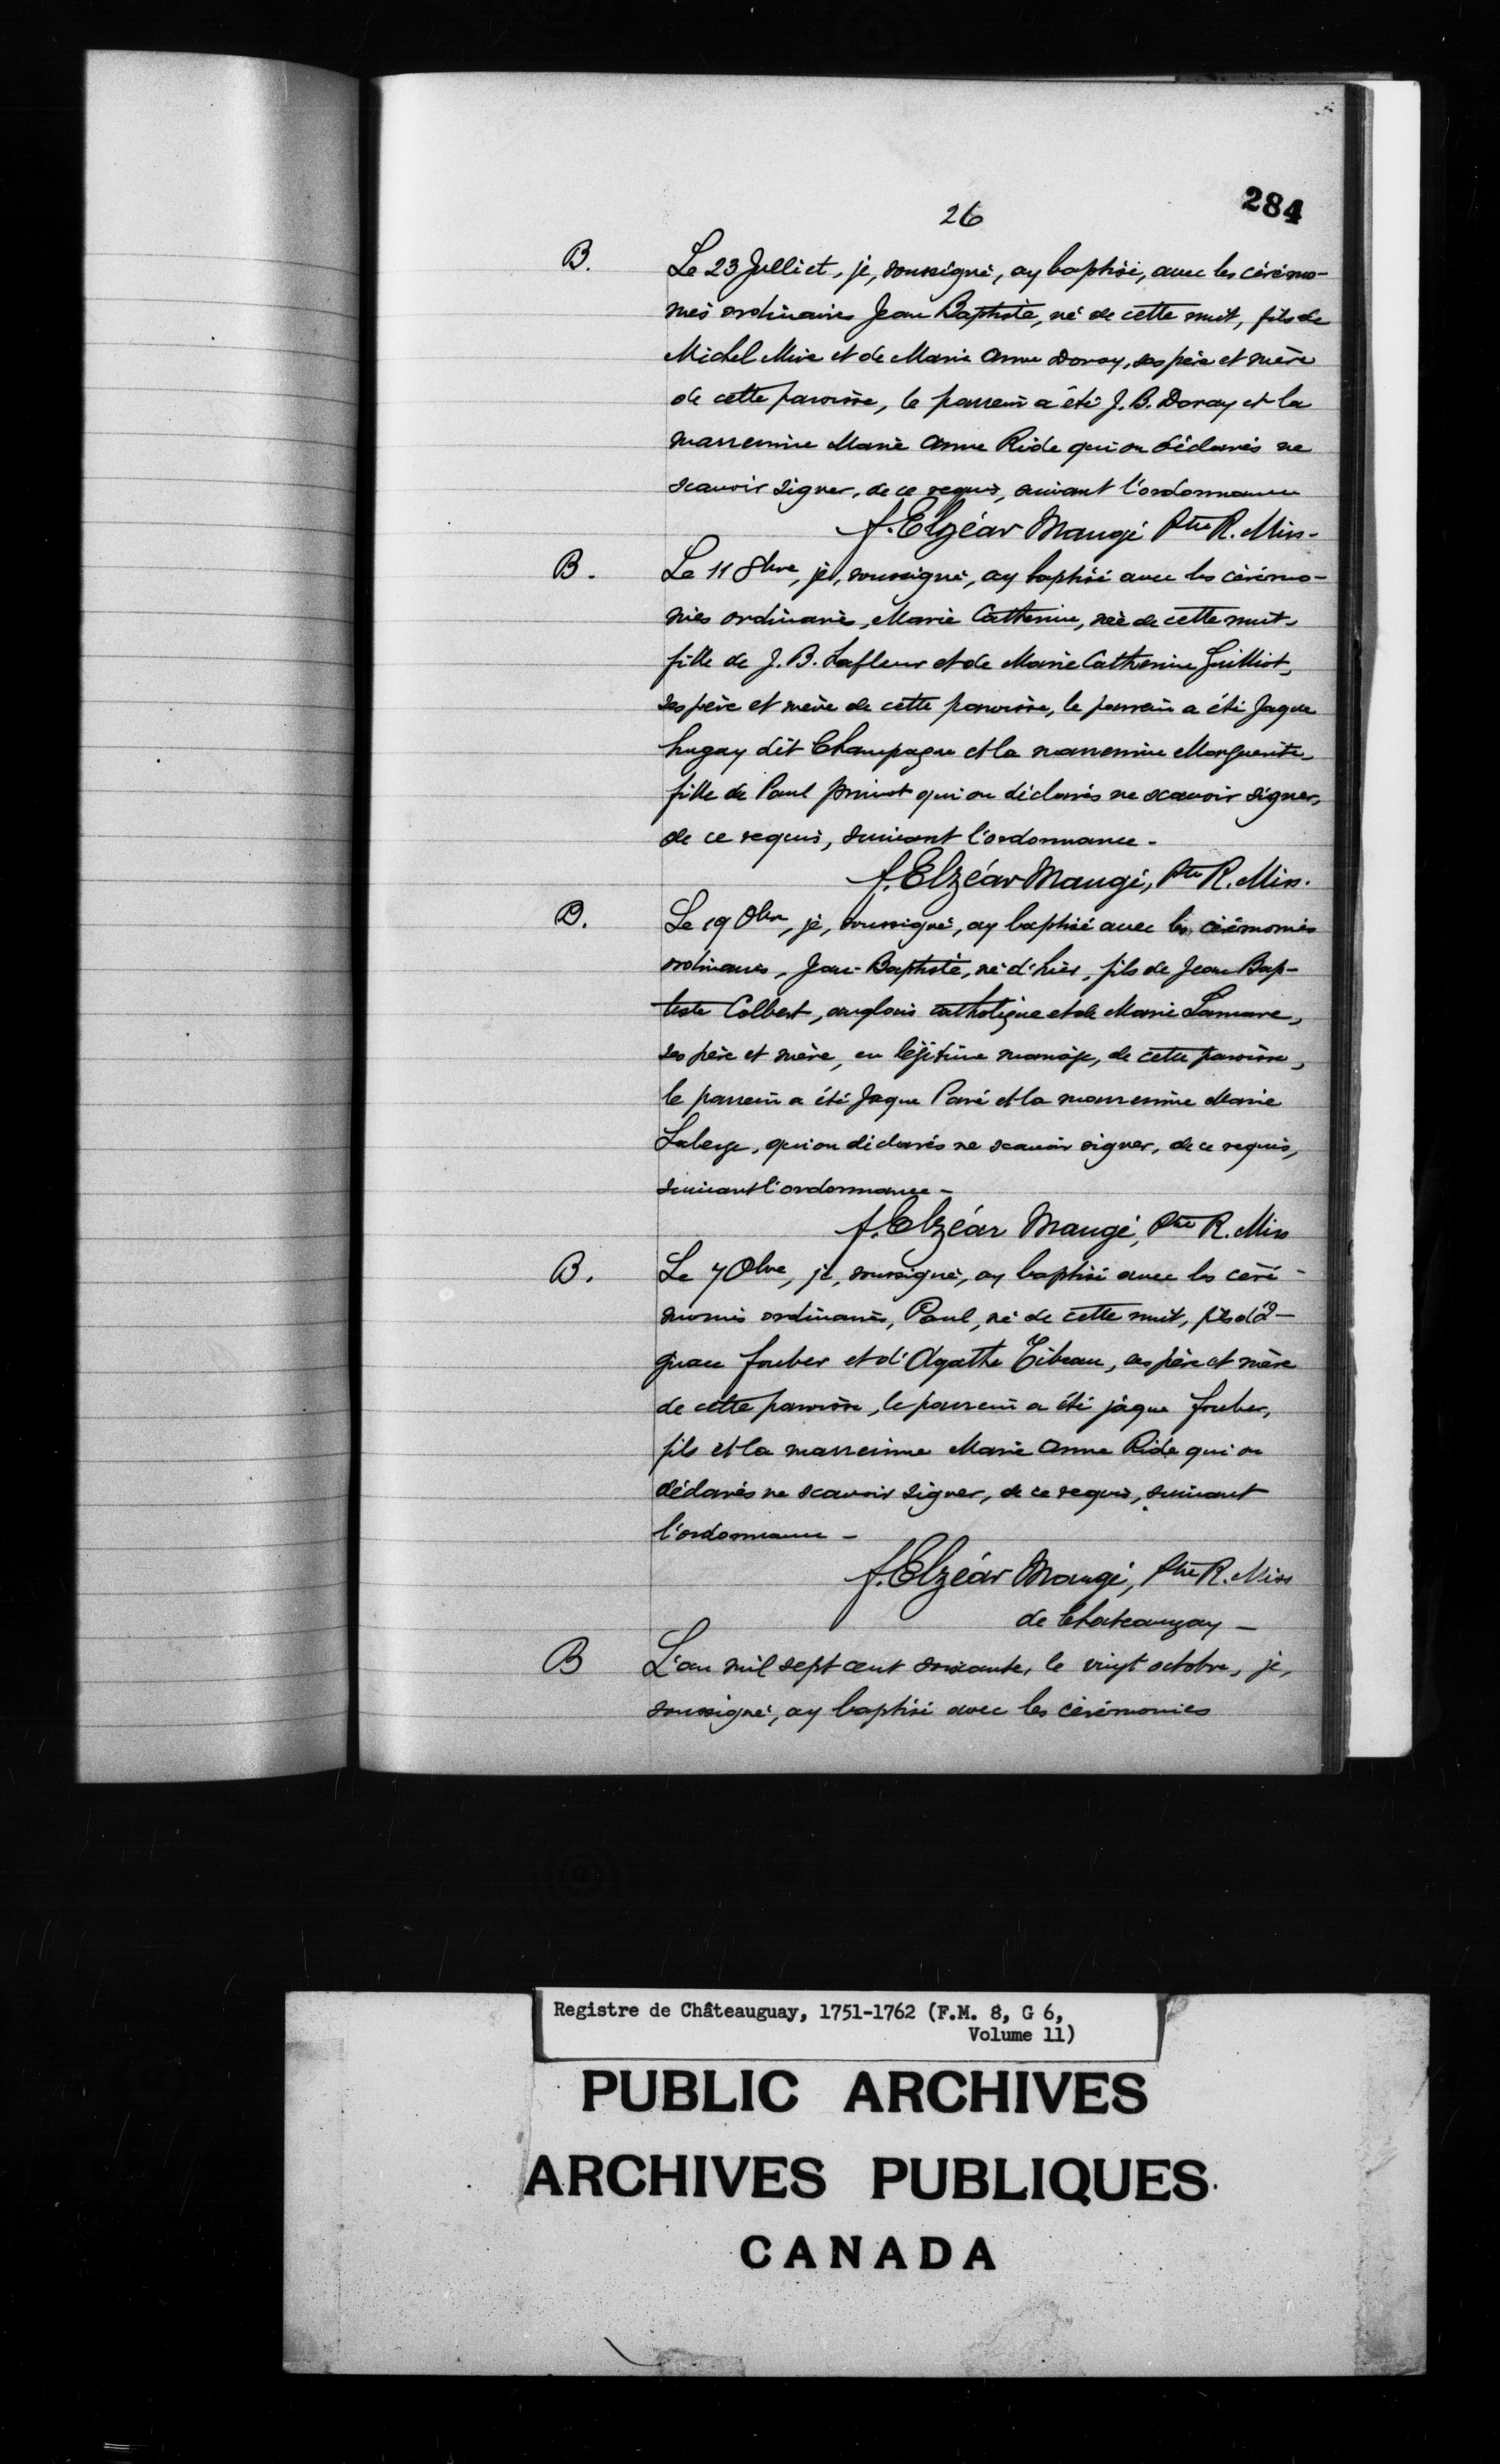 284
26
B. Le 23 Julliet, je, soussigné, ay baptisé, avec les cérémo-
nies ordinaires Jean Baptiste, né de cette nuit, fils de
Michel Mire et de Marie Anne Doray, ses père et mère
de cette paroisse, le parrein a été J. B. Doray et la
marreinne Marie Anne Ride qui on déclarés ne
scavoir signer, de ce requis, suivant l'ordonnance
f. Elzéar Maugé Ptre R. Miss.
B. Le 11 8bre, je, soussigné, ay baptisé avec les cérémo-
nies ordinaires, Marie Catherine, née de cette nuit,
fille de J. B. Lafleur et de Marie Catherine Guilliot,
ses père et mère de cette paroisse, le parrein a été Jaque
hugay dit Champagne et la marreinne Marguerite,
fille de Paul primot qui on déclarés ne scavoir signer,
de ce requis, suivant l'ordonnance.
f. Elzéar Maugé, Ptre R. Miss.
B. Le 19 8bre, je, soussigné, ay baptisé avec les cérémonies
ordinaires, Jean-Baptiste, né d'hier, fils de Jean Bap-
tiste Colbert, anglois catholique et de Marie Lamare,
ses père et mère, en légitime mariage, de cette paroisse,
le parrein a été Jaque Paré et la marreinne Marie
Laberge, qui on déclarés ne scavoir signer, de ce requis,
suivant l'ordonnance-
f. Elzéar Maugé, Ptre R. Miss
B. Le 7 8bre, je, soussigné, ay baptisé avec les céré-
monies ordinaires, Paul, né de cette nuit, fils d'I-
gnace fouber et d'Agathe Tibeau, ses père et mère
de cette paroisse, le parrein a été jaque fouber,
fils et la marreinne Marie Anne Ride qui on
déclarés ne scavoir signer, de ce requis, suivant
l'ordonnance-
f. Elzéar Maugé, Ptre R. Miss
de Chateaugay-
B L'an mil sept cent soixante, le vingt octobre, je,
soussigné, ay baptisé avec les cérémonies
Registre de Châteauguay, 1751-1762 (F.M. 8, G 6,
Volume 11)
PUBLIC ARCHIVES
ARCHIVES PUBLIQUES
CANADA